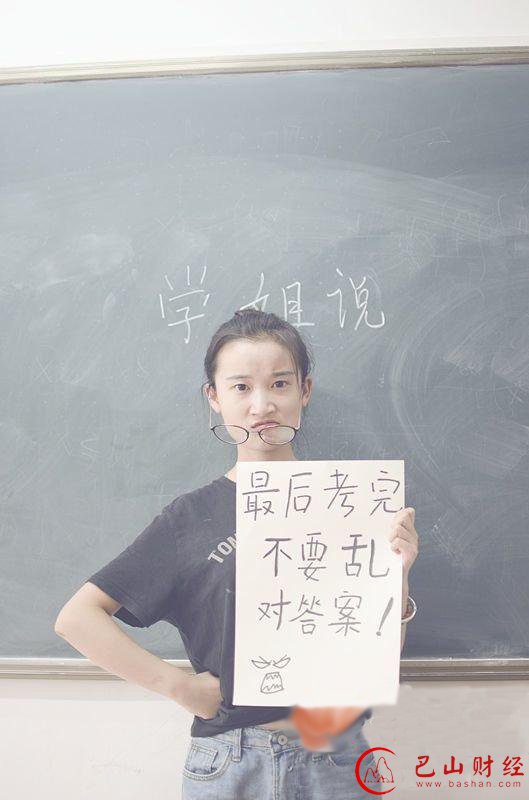 学姐说
最后考完
不要乱
对答案！
TOM
巴山财经
www.bashan.com